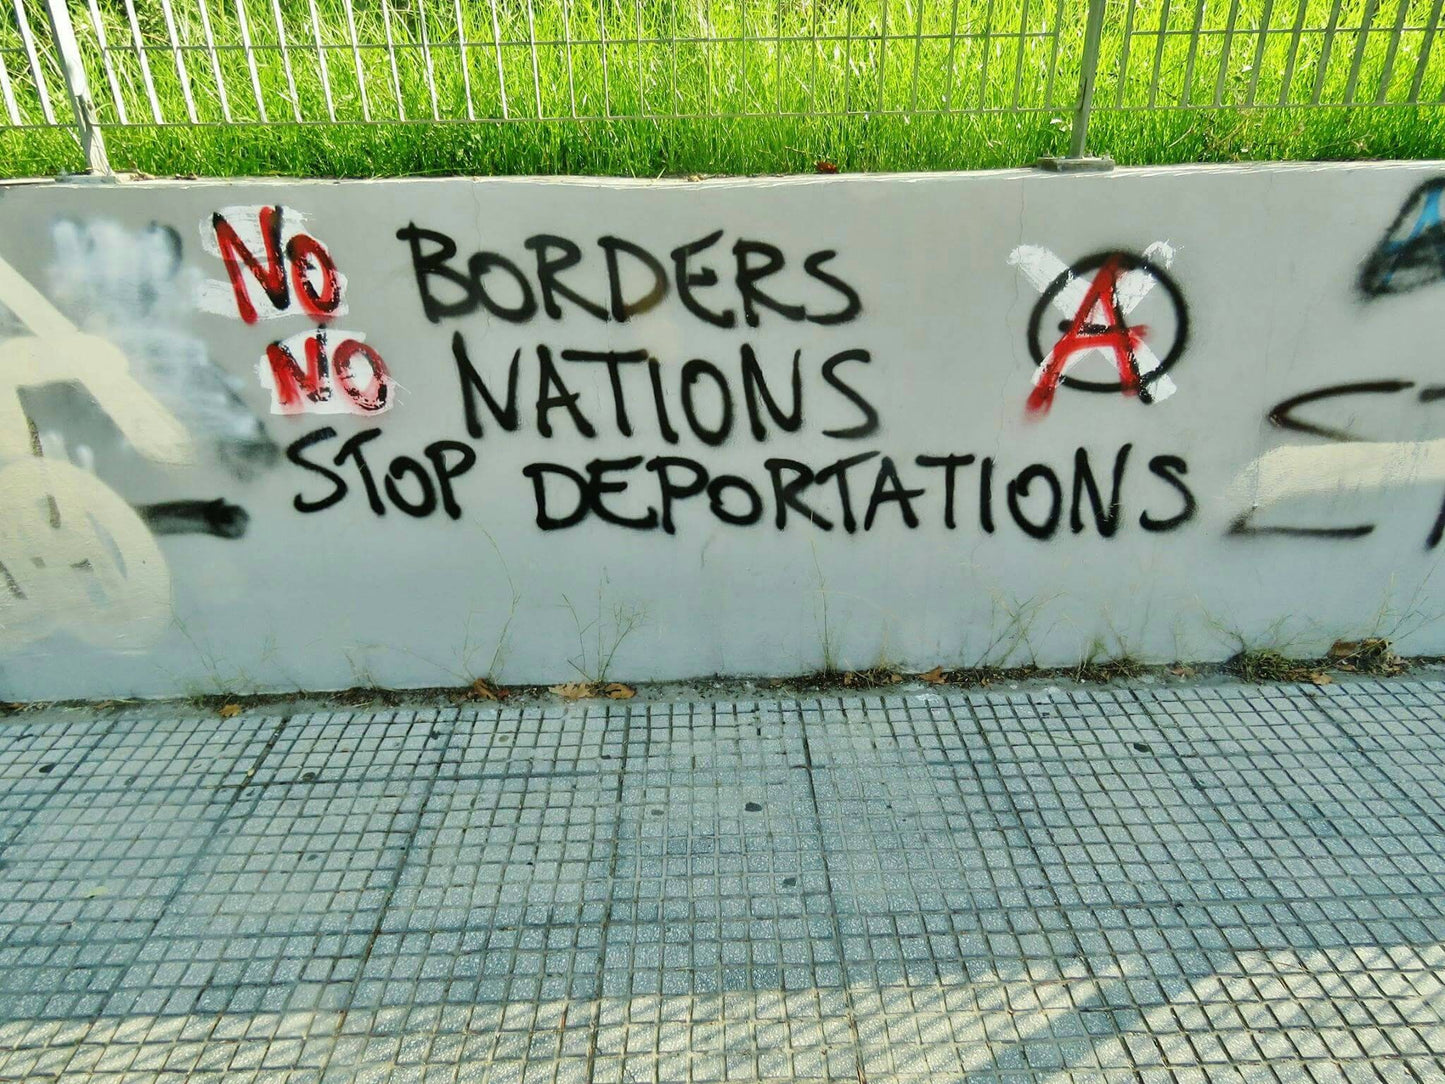 NO BORDERS
NO NATIONS
STOP DEPORTATIONS
A